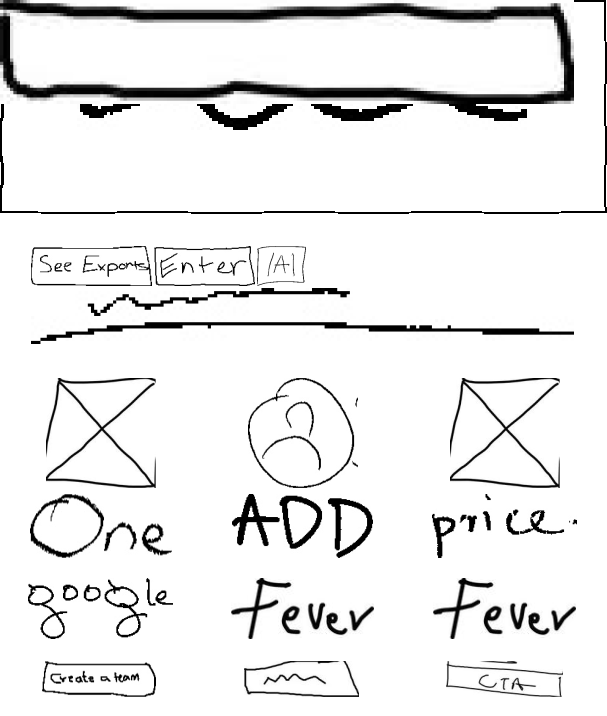 See Exports Enter /A1
One ADD price.
google Fever Fever
Create a team CTA